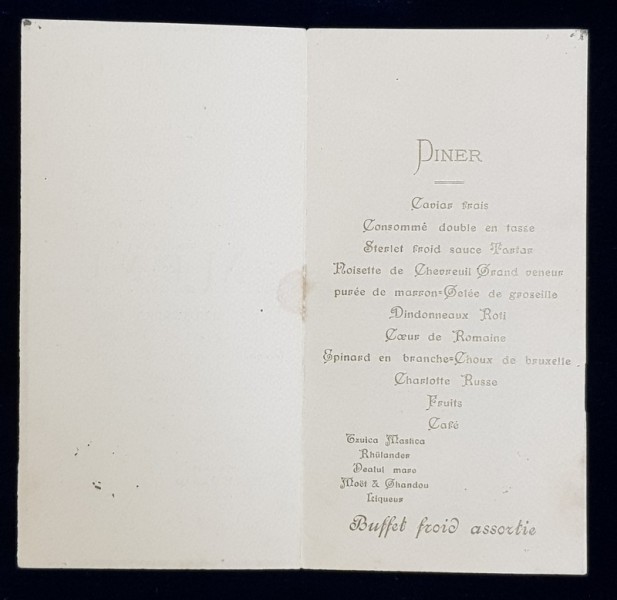 DINER
Caviar frais
Consommé double en tasse
Sterlet froid sauce Tartar
Noisette de Chevreuil Grand veneur
purée de marron=Gelée de groseille
Dindonneaux Roti
Cœur de Romaine
Epinard en branche=Choux de bruxelle
Charlotte Russe
Fruits
Café
Tzuica Mastica
Rhülander
Dealul mare
Moët & Shandou
Liqueur
Buffet froid assortie